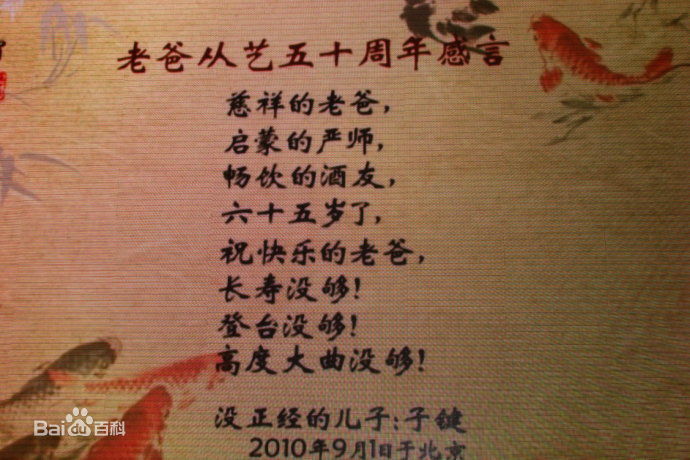 老爸从艺五十周年感言
慈祥的老爸，
启蒙的严师，
畅饮的酒友，
六十五岁了，
祝快乐的老爸，
长寿没够！
登台没够！
高度大曲没够！
没正经的儿子：子键
2010年9月1日于北京
Bai du 百科